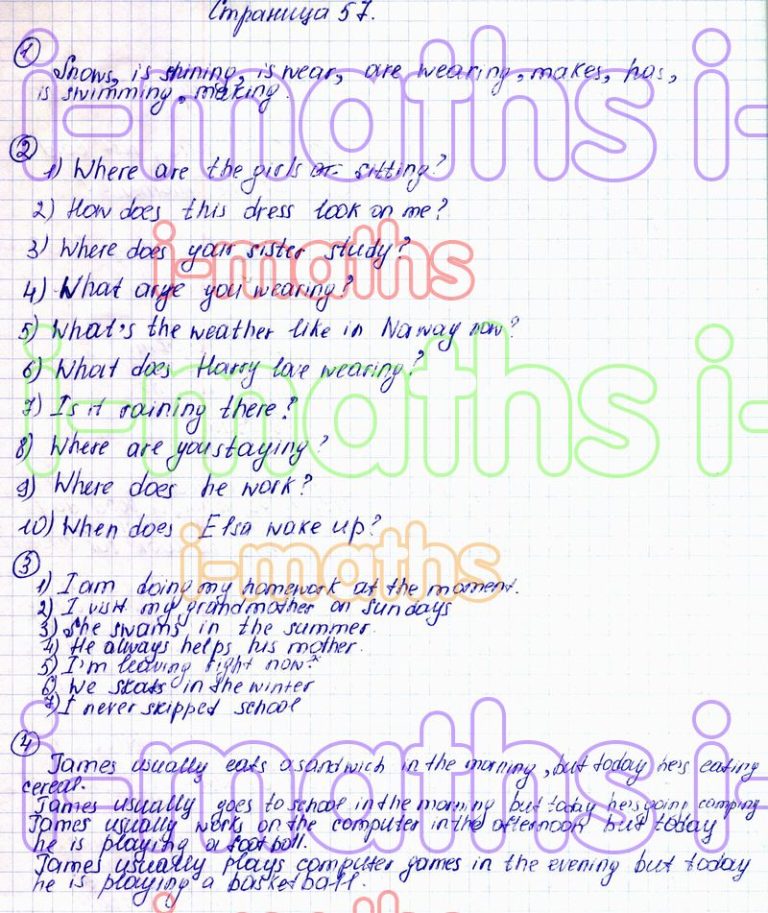 Страница 57.
① Snows, is shining, is wear, are wearing, makes, has,
is swimming, making.
②
1) Where are the girls sitting?
2) How does this dress look on me?
3) Where does your sister study?
4) What are you wearing?
5) What's the weather like in Naway now?
6) What does Harry love wearing?
7) Is it raining there?
8) Where are you staying?
9) Where does he work?
10) When does Elsa wake up?
③
1) I am doing my homework at the moment.
2) I visit my grandmother on sundays
3) She swams in the summer.
4) He always helps his mother.
5) I'm leaving right now.
6) We skats in the winter
7) I never skipped school
④
James usually eats a sandwich in the morning, but today he's eating
cereal.
James usually goes to school in the morning but today he's going camping
James usually works on the computer in the afternoon but today
he is playing a football.
James usually plays computer games in the evening but today
he is playing a basketball.
i-maths i-
i-maths
i-maths i-
i-maths
i-maths i-